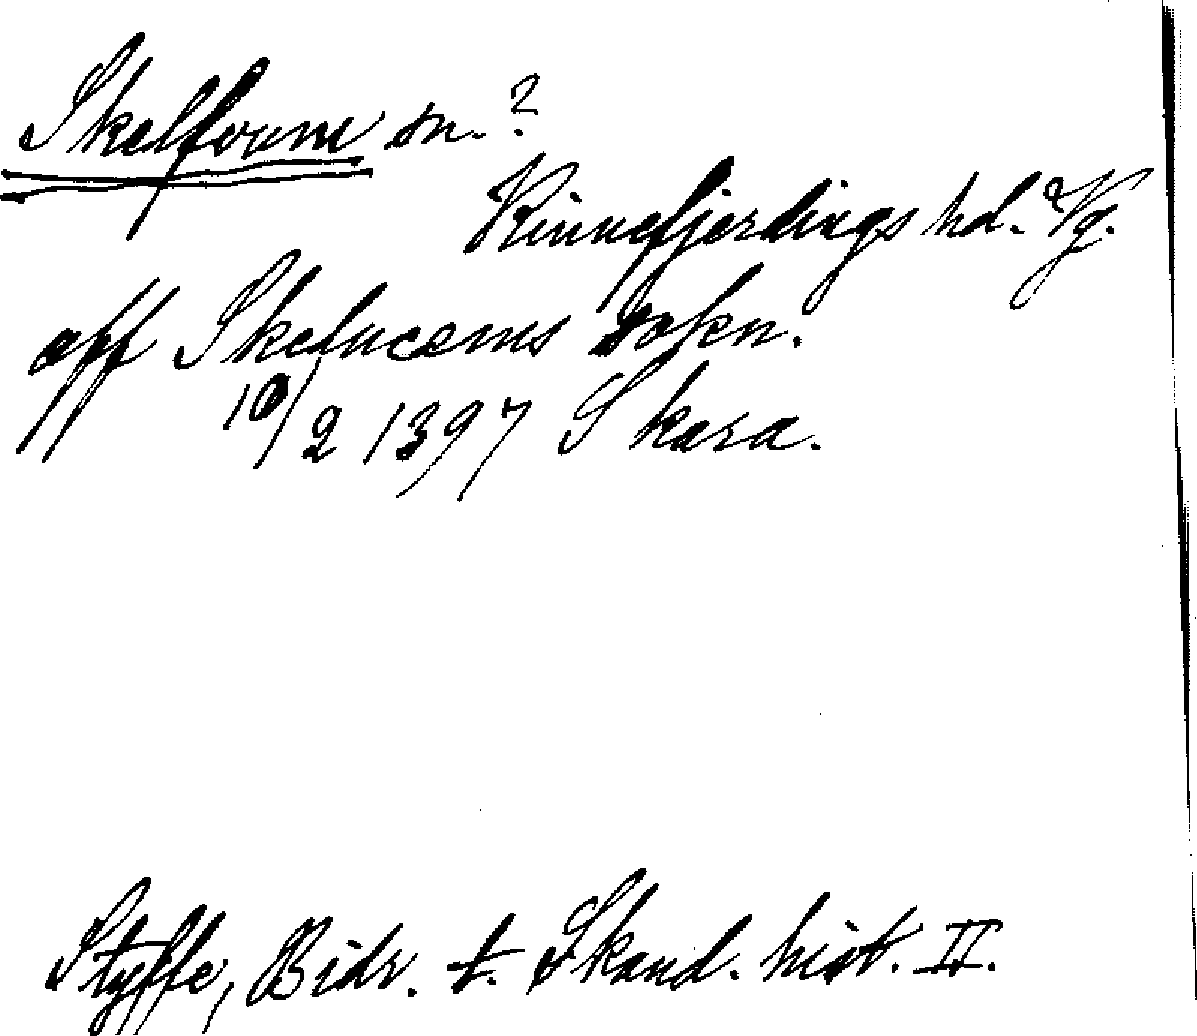 Skelfvum sn. ?
Kinnefjerdings hd. Vg.
aff Skelucems sokn.
10/2 1397 Skara.
Styffe, Bidr. t. Skand. hist. II.